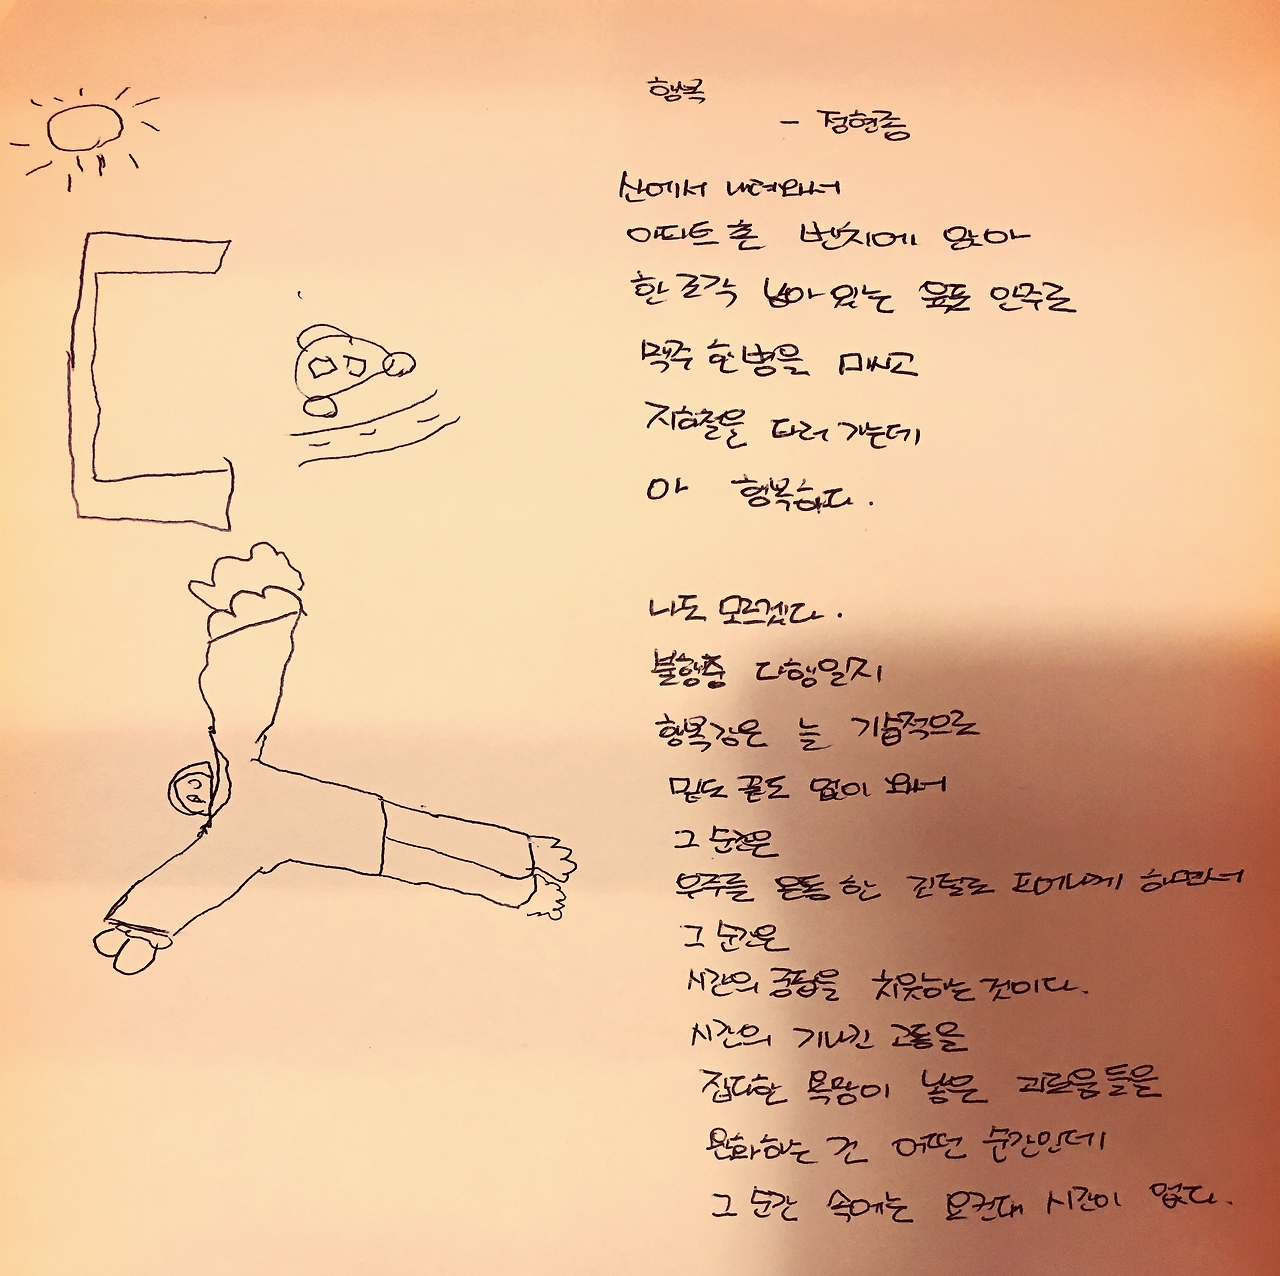 행복
- 정현종
산에서 내려와서
아파트촌 벤치에 앉아
한 조각 남아 있는 육포 안주로
맥주 한 병을 마시고
지하철을 타러 가는데
아 행복하다.
나도 모르겠다.
불행중 다행일지
행복감은 늘 기습적으로
밑도 끝도 없이 와서
그 순간은
우주를 온통 한 깃털로 피어나게 하면서
그 순간은
시간의 궁핍을 치웃하는 것이다.
시간의 기나긴 고통을
잡다한 욕망이 낳은 괴로움들을
완화하는 건 어떤 순간인데
그 순간 속에는 요컨대 시간이 없다.